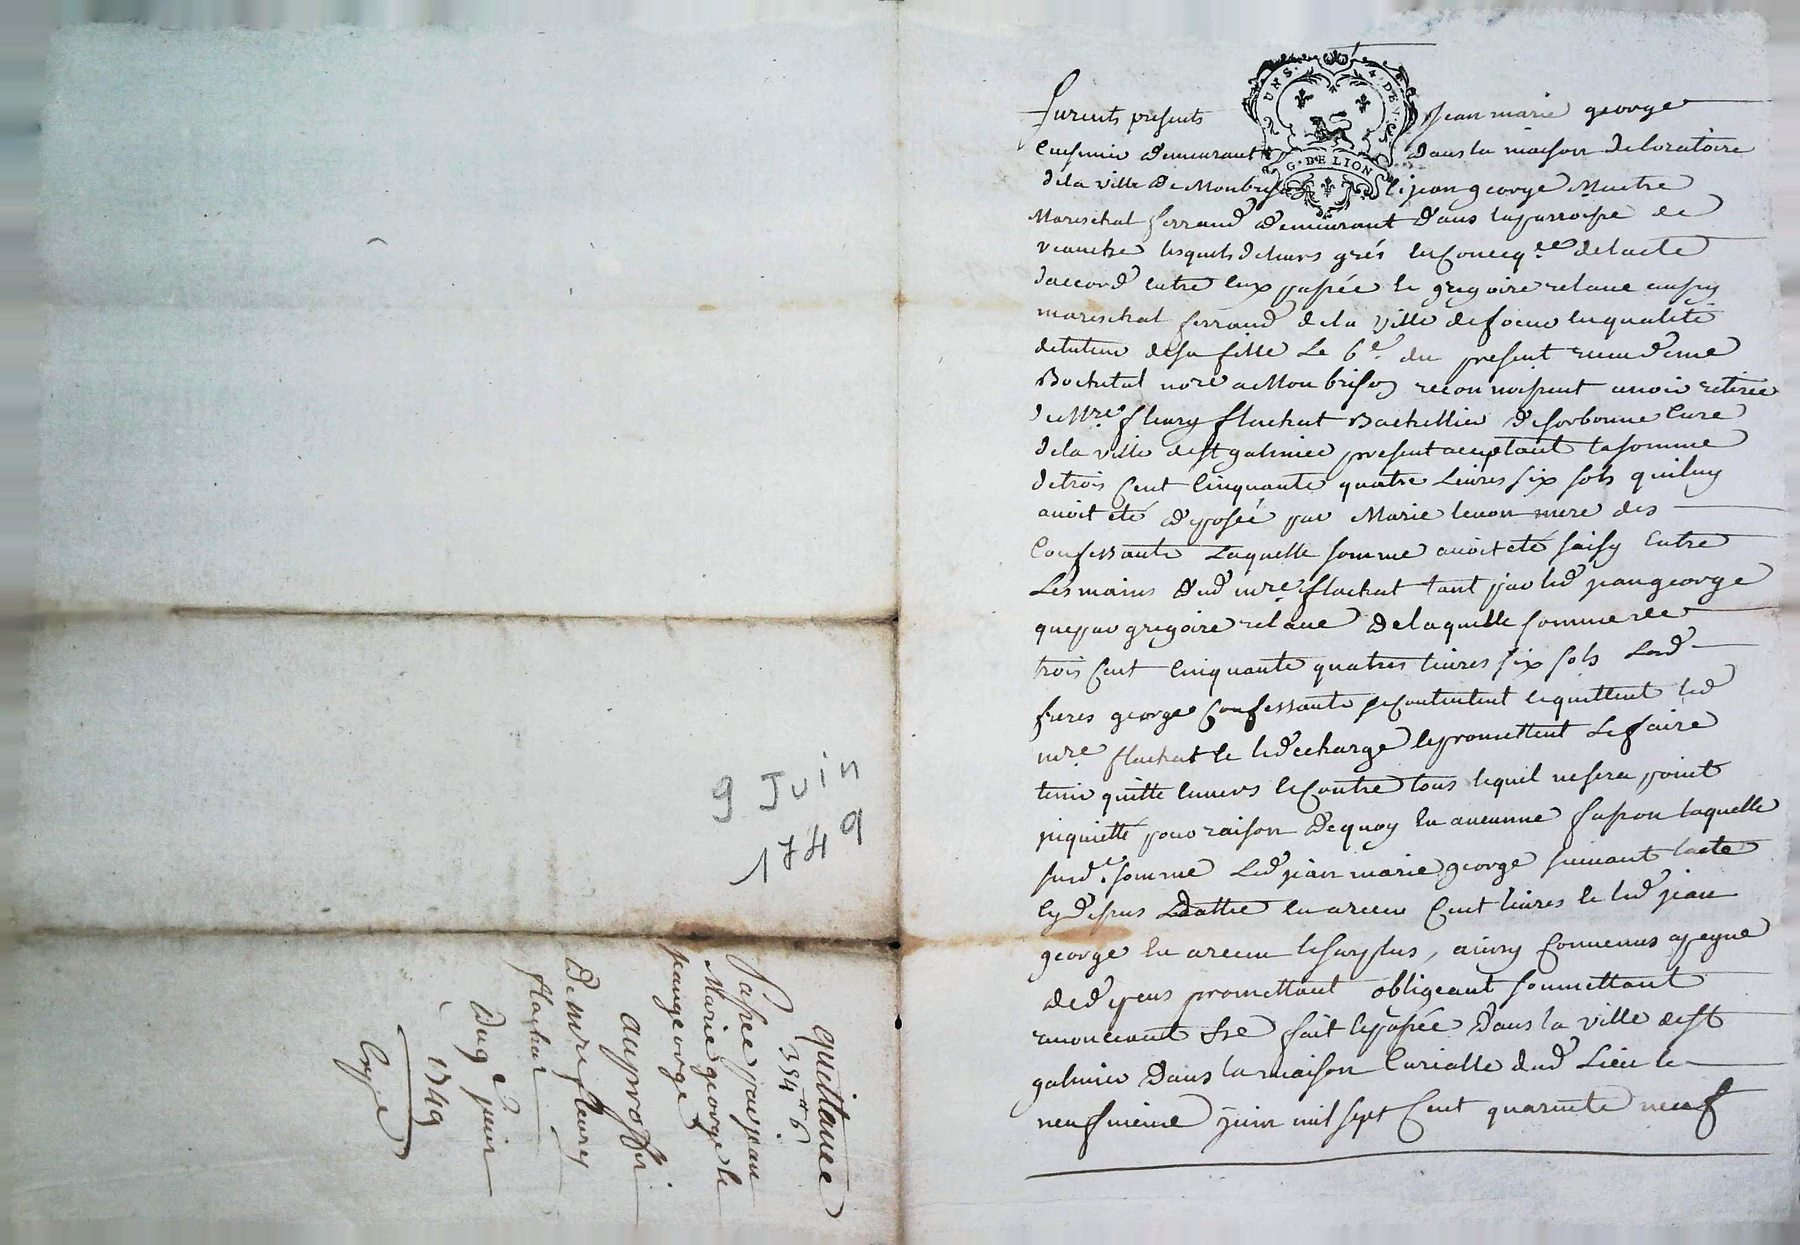 9 Juin
1749
quittance
354 ₶ 6 s
Passée par jean
Marie george &
jean george
au proffit
De mre fleury
flachat
Du 9e juin
1749
UN S. 4. DE V.
G. DE LION
furents presents Jean marie george
Cuisinier demeurant Dans la maison de loratoire
de la ville de Monbrison & jean george Maitre
Mareschal ferrand demeurant dans la parroisse de
veauche lesquels de leurs grés en Conceq.ce de lacte
daccord entre eux passée & gregoire relave aussy
mareschal ferrand de la ville de en qualité
de tuteur de sa fille Le 6e du present receu de me
Bochetal nore a Monbrison reconnoissent avoir retirée
de Mre fleury flachat Bachellier de sorbonne Curé
de la ville de st galmier present acceptant la somme
de trois Cent Cinquante quatre Livres six sols qui luy
avoit eté deposée par Marie mere des
Confessants Laquelle somme avoit eté saisy Entre
Les mains dud mre flachat tant par led jean george
que par gregoire relave De laquelle somme de
trois Cent Cinquante quatres livres six sols Lesd
freres george Confessants se contentent & quittent led
mre flachat & led echarge & promettent Le faire
tenir quitte envers & Contre tous & quil ne sera point
inquietté pour raison de quoy En aucunne fasson laquelle
susd. somme Led jean marie george suivant lacte
cy dessus Datté en a receu Cent livres & led jean
george En a receu le surplus, ainsy Convenus a peyne
de depens promettant obligeant soumettant
renonceant &re fait & passée Dans la ville de st
galmier Dans la maison Curialle dud Lieu le
neufvieme juin mil sept Cent quarente neuf